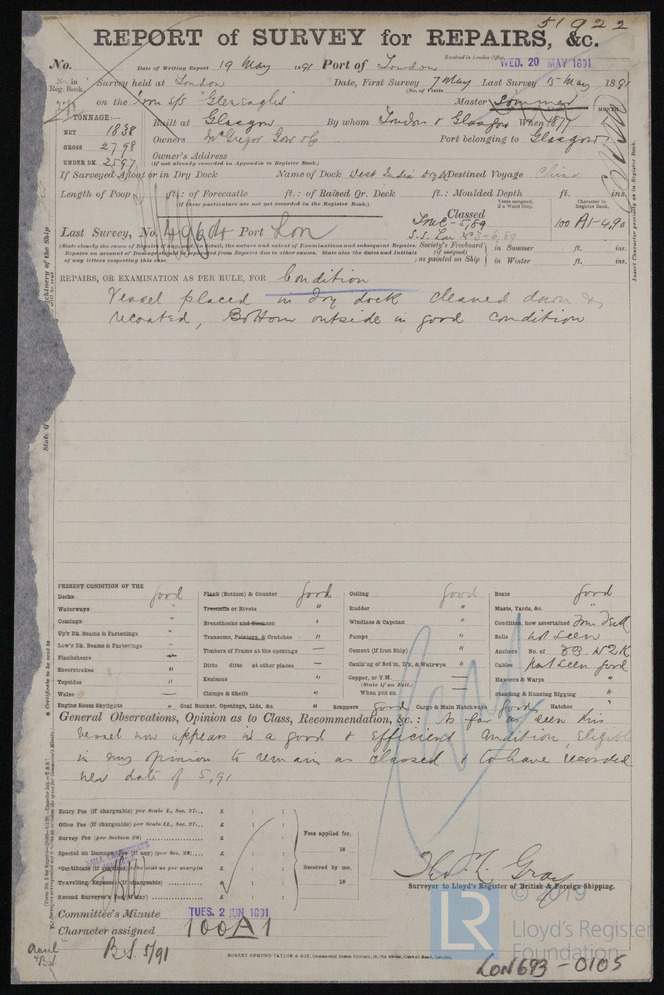 51922
REPORT of SURVEY for REPAIRS, &c.
Received in London Office,
WED. 20 MAY 1891
No. Date of Writing Report 19 May 1891 Port of London
No. in Reg. Book. Survey held at London Date, First Survey 7 May Last Survey 15 May 1891
(No. of Visits
on the Iron s/s "Gleneagles" Master
TONNAGE:—
NET 1838
GROSS 2798
UNDER DK. 2597
Built at Glasgow By whom London & Glasgow When 1877
Owners McGregor Gow & Co Port belonging to Glasgow
Owner's Address
(If not already recorded in Appendix to Register Book.)
If Surveyed Afloat or in Dry Dock Name of Dock West India Dry Dk Destined Voyage China
Length of Poop ft.: of Forecastle ft.: of Raised Qr. Deck ft.: Moulded Depth ft. ins.
(if these particulars are not yet recorded in the Register Book.)
Classed
Years assigned, if a Wood Ship.
Character in Register Book.
100 A1-4,90
LMC-5,89
S.S. Lon No 3-6,89
Last Survey, No. 49604 Port Lon
(State clearly the cause of Repairs if any, and detail, the nature and extent of Examinations and subsequent Repairs. Repairs on account of Damage to be separated from Repairs due to other causes. State also the dates and Initials of any letters respecting this case.
Society's Freeboard (if assigned) as painted on Ship
in Summer ft. ins.
in Winter ft. ins.
Insert Character precisely as in Register Book.
REPAIRS, OR EXAMINATION AS PER RULE, FOR Condition
Vessel placed in Dry dock cleaned down &
recoated, Bottom outside in good condition
PRESENT CONDITION OF THE
Decks good
Waterways "
Comings "
Up'r Dk. Beams & Fastenings "
Low'r Dk. Beams & Fastenings "
Planksheers
Sheerstrakes "
Topsides "
Wales —
Engine Room Skylights "
Plank (Bottom) & Counter good
Treenails or Rivets "
Breasthooks and Stemson "
Transoms, Pointers, & Crutches "
Timbers of Frame at the openings —
Ditto ditto at other places —
Keelsons "
Clamps & Shelfs "
Coal Bunker, Openings, Lids, &c. "
Ceiling good
Rudder "
Windlass & Capstan "
Pumps "
Cement (if Iron Ship) "
Caulk'ng of Bot'm, D'k, & Waterwys
Copper, or Y.M.
(State if on Felt.)
When put on
Scuppers good Cargo & Main Hatchways good
Boats good
Masts, Yards, &c. "
Condition, how ascertained from Deck
Sails not seen
Anchors No. of 3B. 1S 2K
Cables part seen good
Hawsers & Warps "
Standing & Running Rigging "
Hatches "
General Observations, Opinion as to Class, Recommendation, &c.: As far as seen this
vessel now appears in a good & efficient condition, Eligible
in my opinion to remain as classed & to have recorded
new date of 5,91
Entry Fee (if chargeable) per Scale I., Sec. 27... £ : :
Office Fee (if chargeable) per Scale II., Sec. 27... £ : :
Survey Fee (per Section 28) £ : :
Special or Damage Fee (if any) (per Sec. 28) £ : :
*Certificate (if required) to be sent as per margin
Travelling Expenses (if chargeable) £ : :
Second Surveyor's Fee (if any) £ : :
Fees applied for,
18
Received by me,
18
Thos. K. Gray
Surveyor to Lloyd's Register of British & Foreign Shipping.
Committee's Minute TUES. 2 JUN 1891
Character assigned 100A1
B.S. 5/91
ROBERT ORMUND TAYLOR & SON,
© 2019
LR
Lloyd's Register
Foundation
LON693-0105